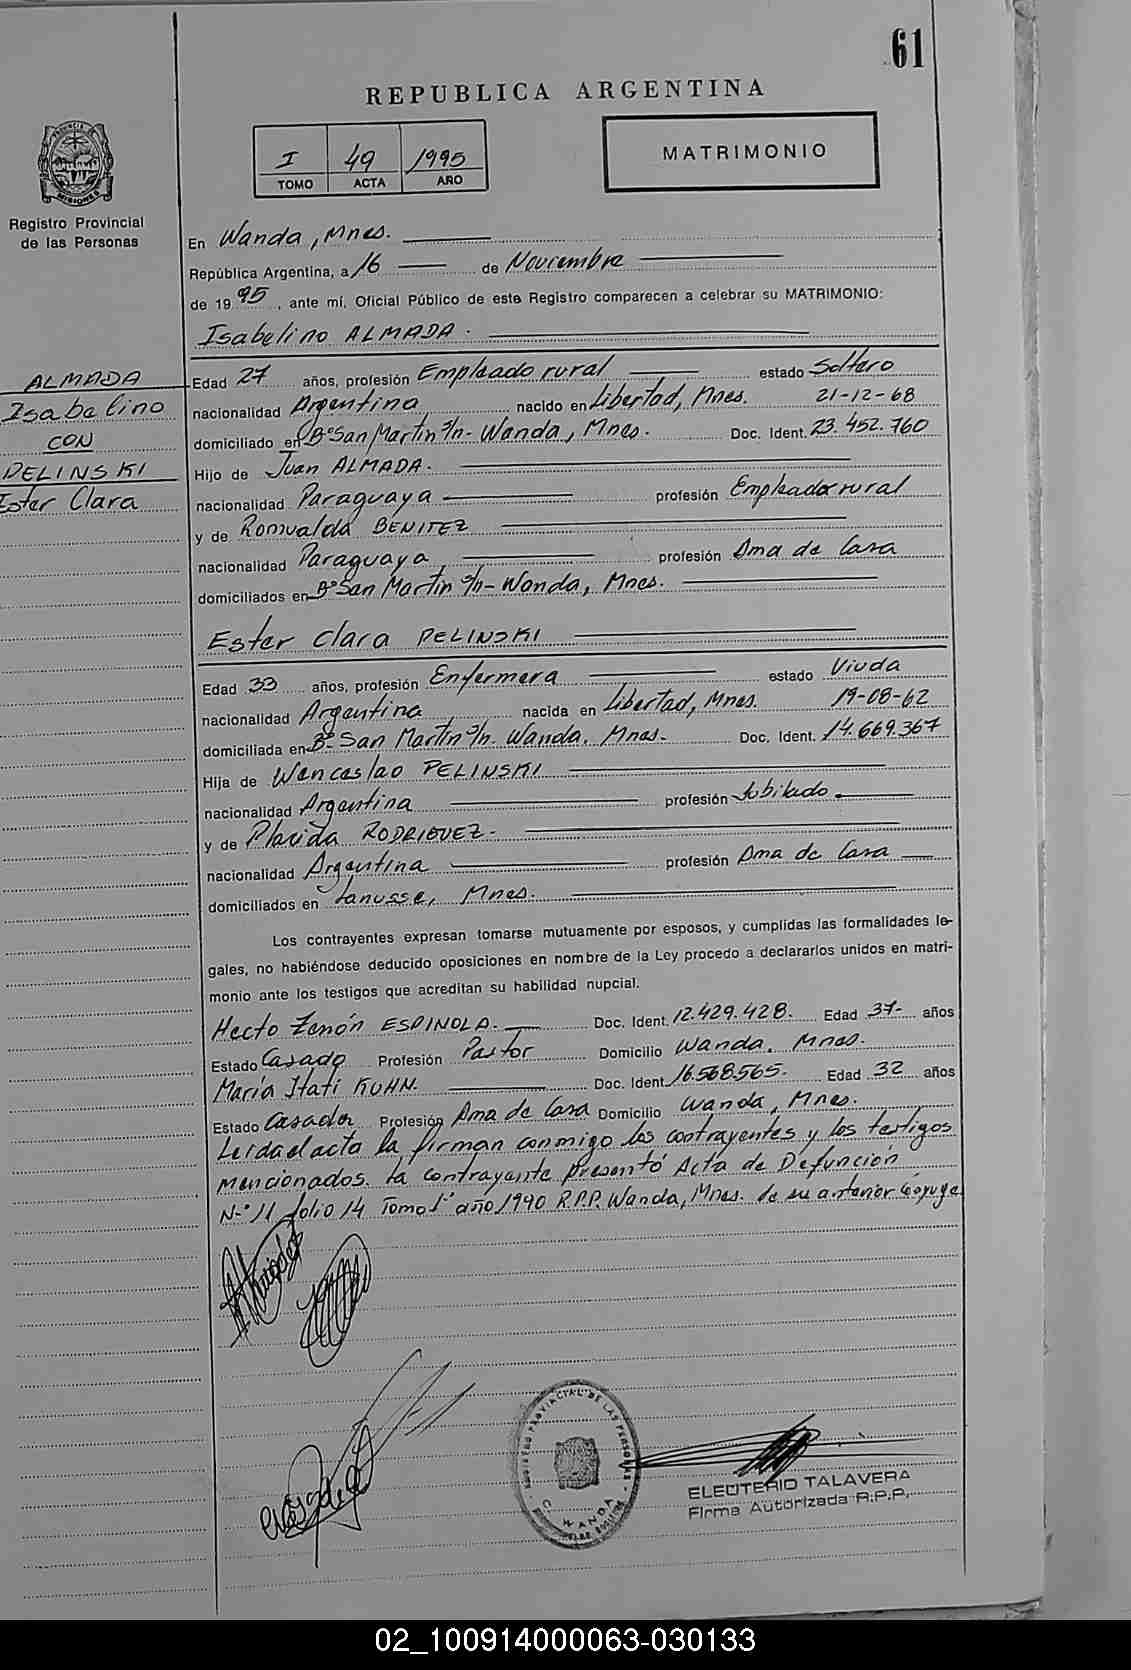 61
REPUBLICA ARGENTINA
I 49 1995
TOMO ACTA AÑO
MATRIMONIO
PROVINCIA DE MISIONES
Registro Provincial
de las Personas
En Wanda, Mnes.
República Argentina, a 16 de Noviembre
de 1995, ante mí, Oficial Público de este Registro comparecen a celebrar su MATRIMONIO:
Isabelino ALMADA.
ALMADA
Isabelino
CON
PELINSKI
Ester Clara
Edad 27 años, profesión Empleado rural estado Soltero
nacionalidad Argentina nacido en Libertad, Mnes. 21-12-68
domiciliado en Bº San Martin s/n- Wanda, Mnes. Doc. Ident. 23.452.760
Hijo de Juan ALMADA.
nacionalidad Paraguaya profesión Empleado rural
y de Romualda BENITEZ
nacionalidad Paraguaya profesión Ama de Casa
domiciliados en Bº San Martin s/n- Wanda, Mnes.
Ester Clara PELINSKI
Edad 33 años, profesión Enfermera estado Viuda
nacionalidad Argentina nacida en Libertad, Mnes. 19-08-62
domiciliada en Bº San Martin s/n. Wanda. Mnes. Doc. Ident. 14.669.367
Hija de Wenceslao PELINSKI
nacionalidad Argentina profesión Jubilado
y de Placida RODRIGUEZ.
nacionalidad Argentina profesión Ama de Casa
domiciliados en Lanusse, Mnes.
Los contrayentes expresan tomarse mutuamente por esposos, y cumplidas las formalidades le-
gales, no habiéndose deducido oposiciones en nombre de la Ley procedo a declararlos unidos en matri-
monio ante los testigos que acreditan su habilidad nupcial.
Hecto Zenón ESPINOLA. Doc. Ident. 12.429.428. Edad 37- años
Estado Casado Profesión Pastor Domicilio Wanda. Mnes.
María Itatí KUHN. Doc. Ident. 16.568.565. Edad 32 años
Estado Casada Profesión Ama de Casa Domicilio Wanda, Mnes.
Leida el acta la firman conmigo los contrayentes y los testigos
mencionados. La contrayente presentó Acta de Defunción
N-º 11 folio 14 Tomo 1º año 1990 R.P.P. Wanda, Mnes. de su anterior Conyuge
REGISTRO PROVINCIAL DE LAS PERSONAS
WANDA
ELEUTERIO TALAVERA
Firma Autorizada R.P.P.
02_100914000063-030133